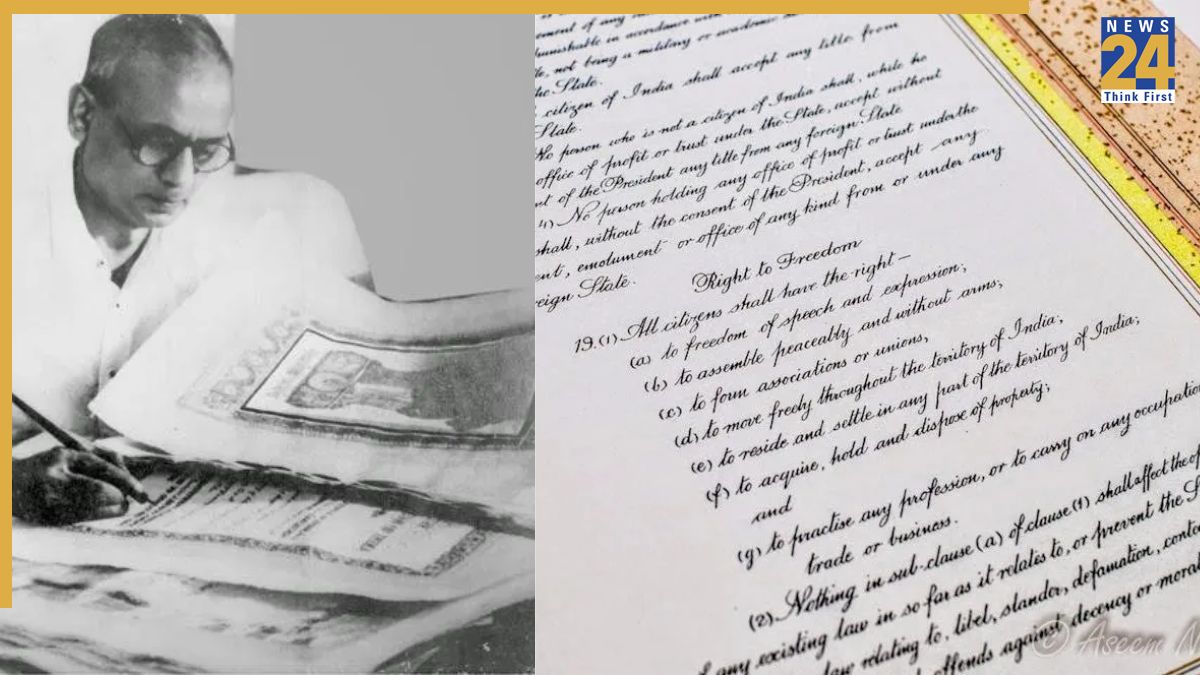 NEWS
24
Think First
ement of any
punishable in accordance with
le, not being a military or academic
the State.
citizen of India shall accept any title from
State.
No person who is not a citizen of India shall, while he
office of profit or trust under the State, accept without
nt of the President any title from any foreign State
4) No person holding any office of profit or trust under the
shall, without the consent of the President, accept any
ent, emolument or office of any kind from or under any
eign State.
Right to Freedom
19.(1) All citizens shall have the right —
(a) to freedom of speech and expression;
(b) to assemble peaceably and without arms;
(c) to form associations or unions;
(d) to move freely throughout the territory of India;
(e) to reside and settle in any part of the territory of India;
(f) to acquire, hold and dispose of property;
and
(g) to practise any profession, or to carry on any occupation
trade or business.
(2) Nothing in sub-clause (a) of clause (1) shall affect the
f any existing law in so far as it relates to, or prevent the
law relating to, libel, slander, defamation,
offends against decency or
© Aseem